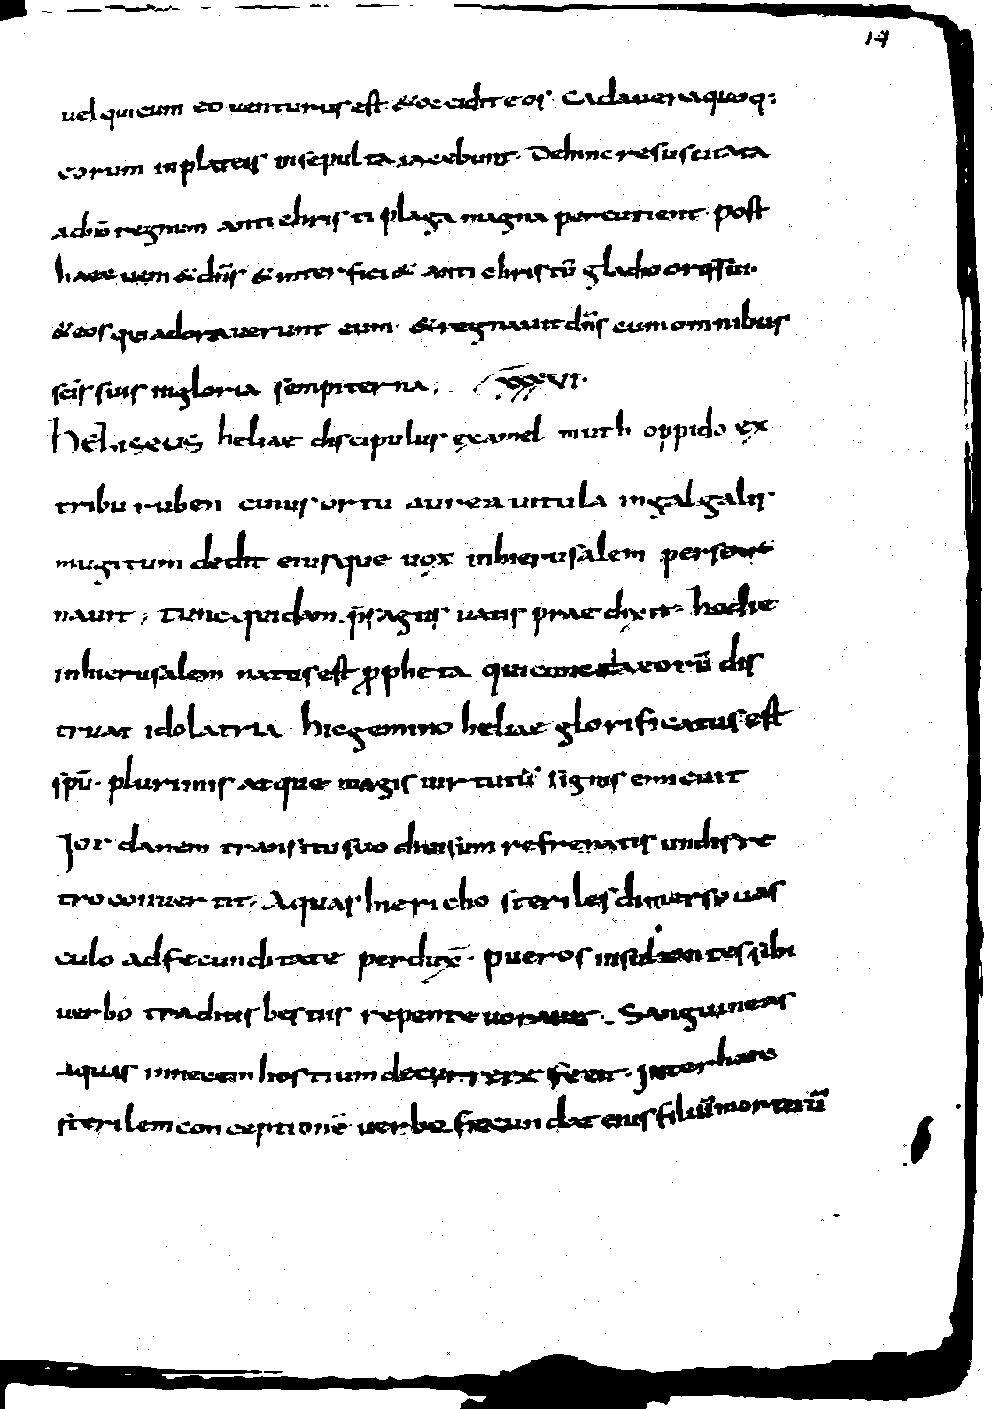 14
uel qui cum eo uenturus est & occidit eos. Cadauera quoq;
eorum in plateis insepulta iacebunt. Dehinc resuscitata
ad[...] regnum antichristi plaga magna percutient. Post
haec ueni& dn̄s & interfici& antichristū gladio oris sui.
& eos qui adorauerunt eum. & regnauit dn̄s cum omnibus
scīs suis in gloria sempiterna; XXXVI.
Heliseus heliae discipulus ex amel muth oppido ex
tribu ruben cuius ortu aurea uitula in galgalis
mugitum dedit eiusque uox in hierusalem perso
nauit; Tunc quidam p̄sagus uatis prae dixit. hodie
in hierusalem natus est propheta qui eorū dis
truat idolatria hic gemino heliae glorificatus est
spū. plurimis atque magis uirtutū signis enicuit
Jordanem transitu suo diuisum refrenatis undis re
tro conuertit. Aquas hiericho steriles diuerso uas
culo ad fecunditate perdux̄. pueros insultantes sibi
uerbo traditis bestiis repente uorauit. Sanguineas
aquas in necem hostium fecit. Inter haec
sterilem conceptionē uerbo fecundat eius filiū mortuū